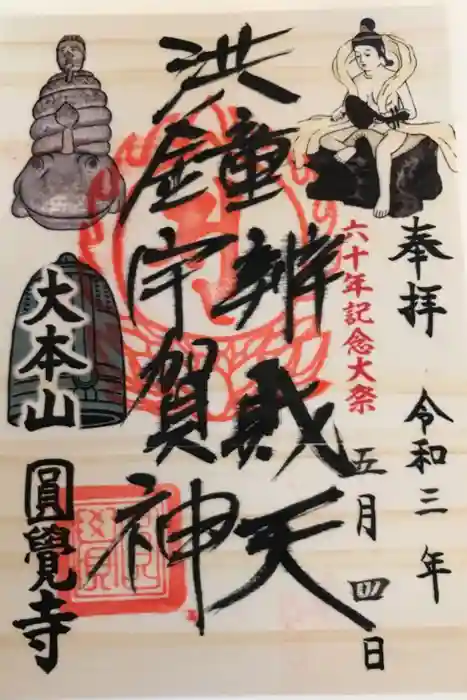 奉拝
令和三年
五月四日
六十年記念大祭
洪鐘辨戝天
宇賀神
大本山
圓覺寺